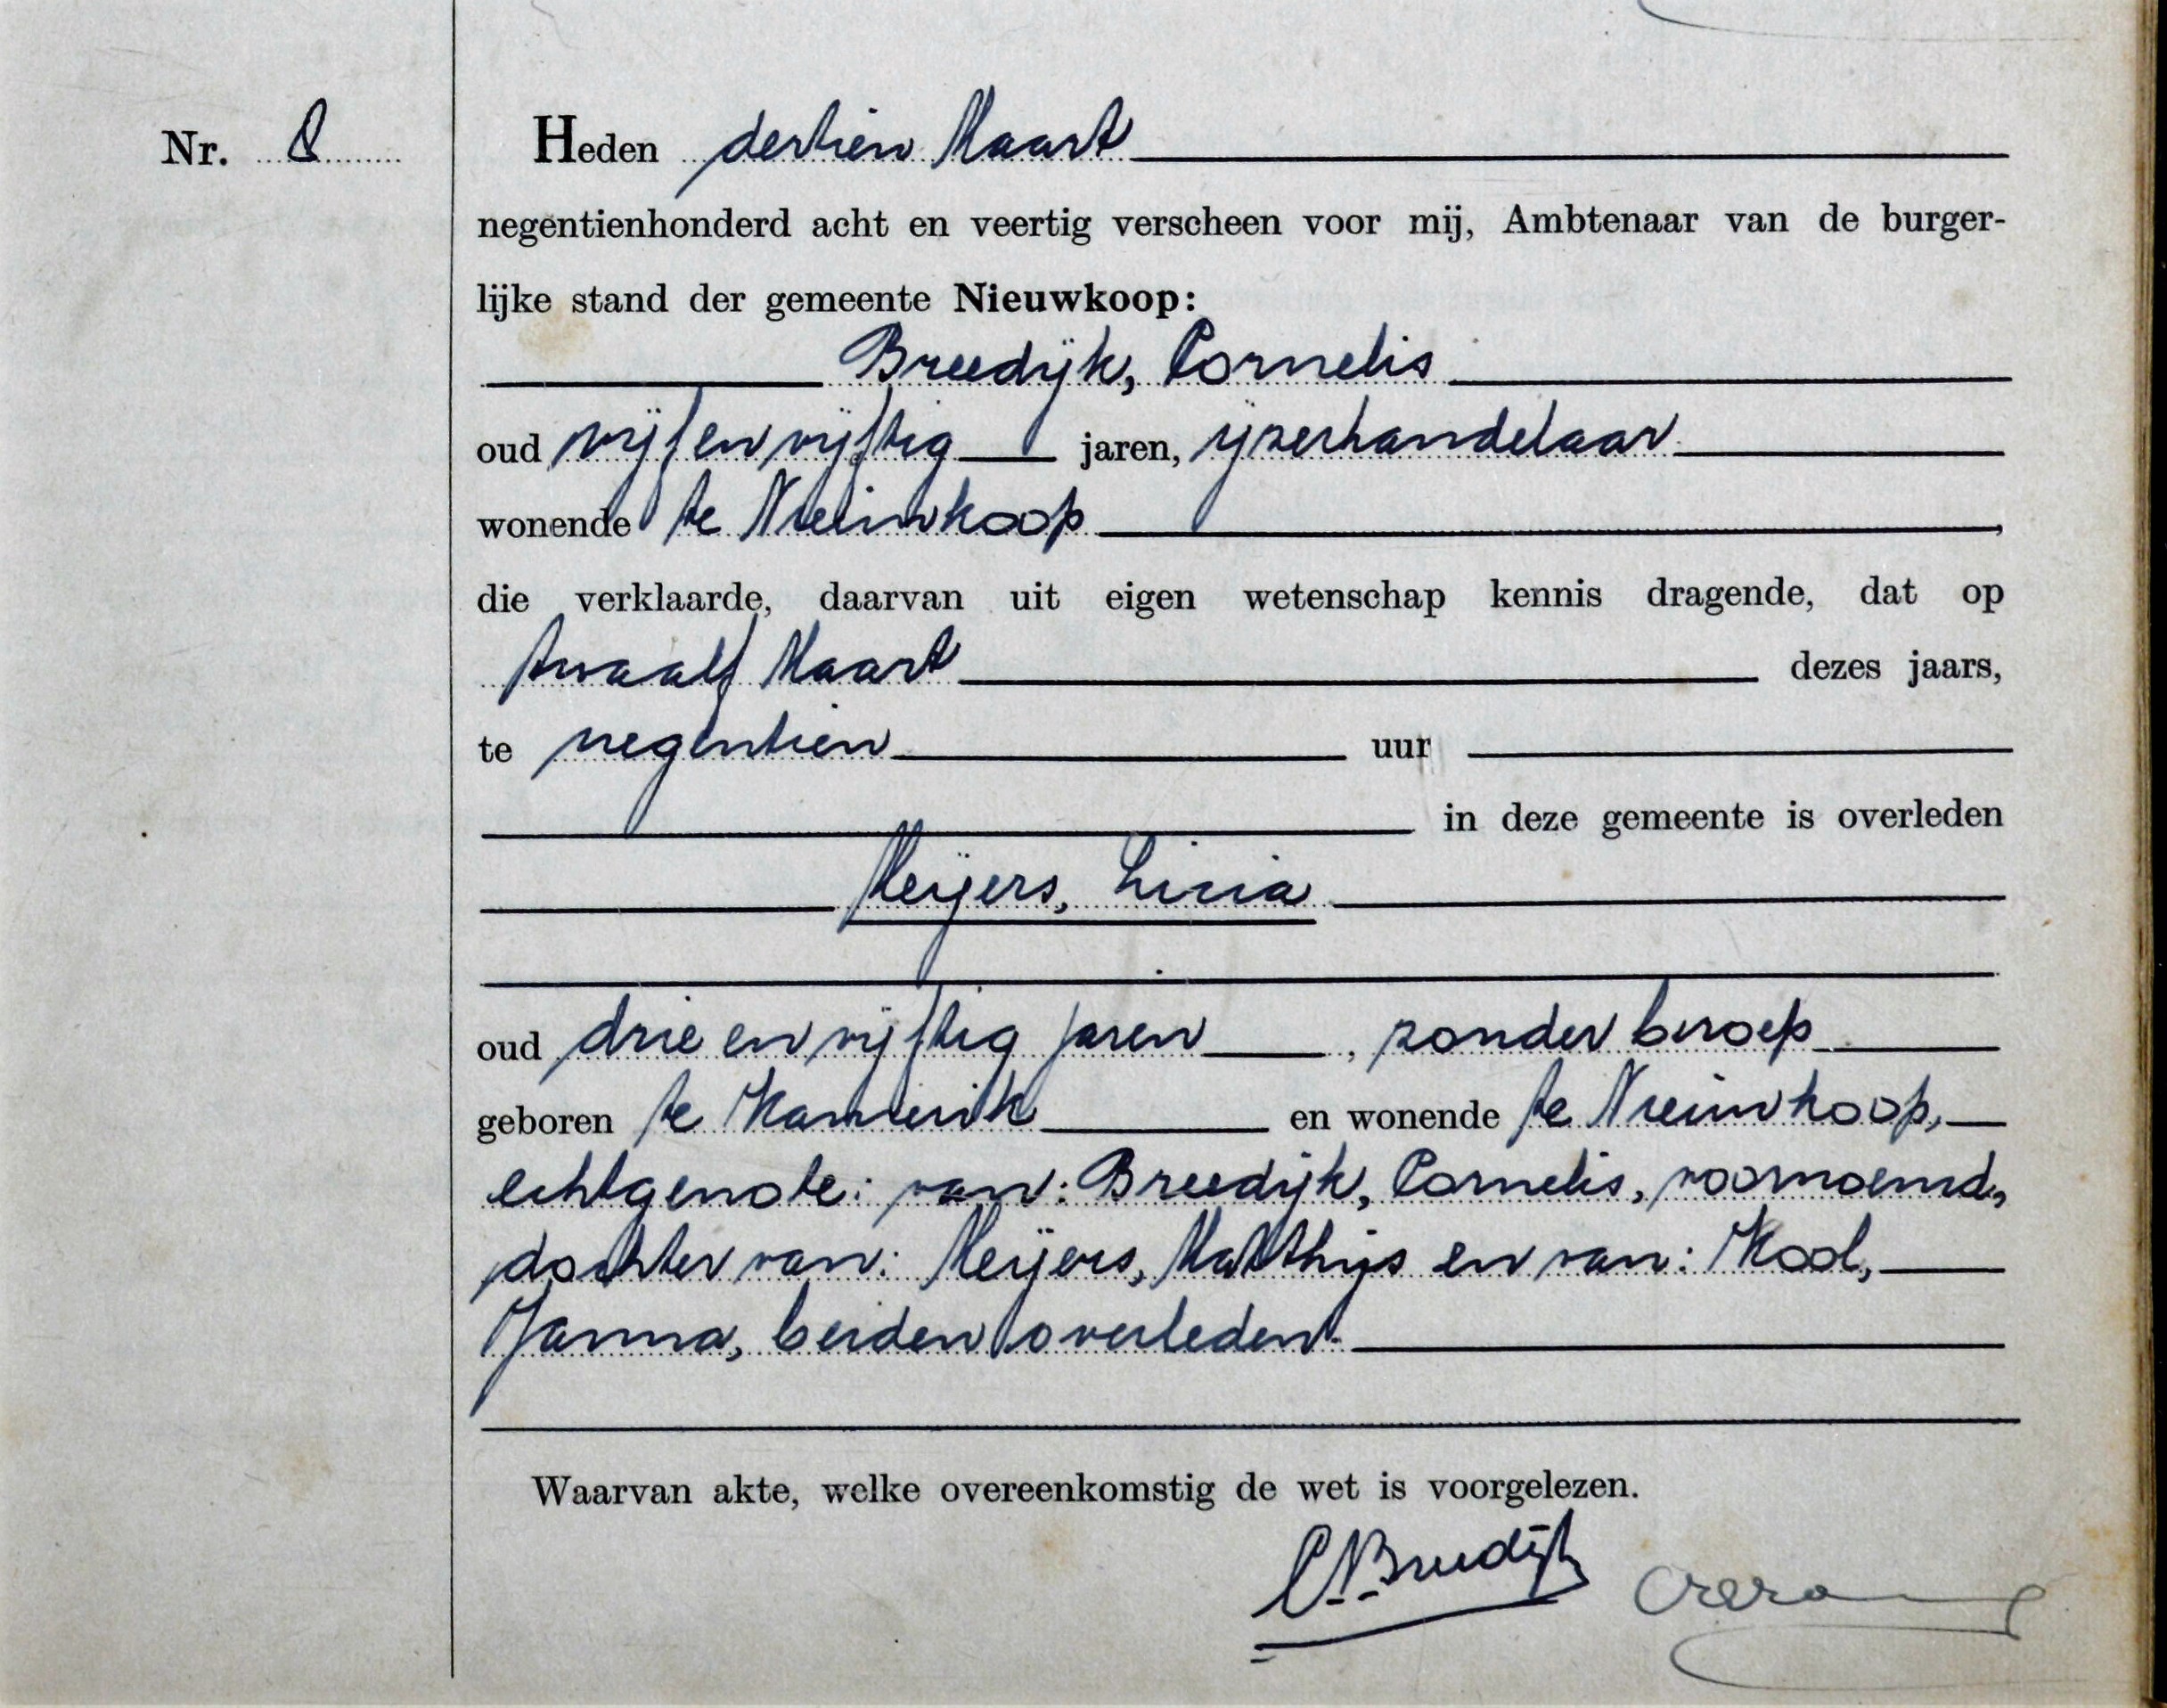 Nr. 8
Heden dertien Maart
negentienhonderd acht en veertig verscheen voor mij, Ambtenaar van de burger-
lijke stand der gemeente Nieuwkoop:
Breedijk, Cornelis
oud vijf en vijftig jaren, ijzerhandelaar
wonende te Nieuwkoop,
die verklaarde, daarvan uit eigen wetenschap kennis dragende, dat op
twaalf Maart dezes jaars,
te negentien uur
in deze gemeente is overleden
Meijers, Licia
oud drie en vijftig jaren, zonder beroep
geboren te Kamerik en wonende te Nieuwkoop,
echtgenote: van: Breedijk, Cornelis, voornoemd,
dochter van: Meijers, Matthijs en van: Kool,
Janna, beiden overleden.
Waarvan akte, welke overeenkomstig de wet is voorgelezen.
C. Breedijk